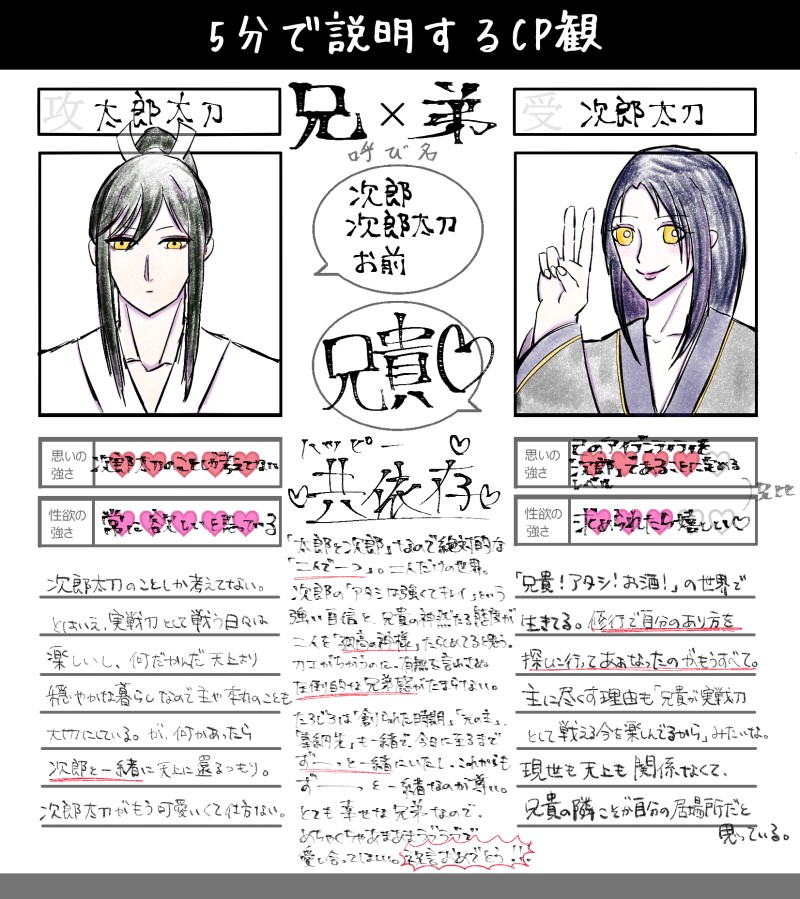 5分で説明するCP観
攻 太郎太刀
兄×弟
受 次郎太刀
呼び名
次郎
次郎太刀
お前
兄貴♡
思いの強さ
次郎太刀のことしか考えてない
性欲の強さ
常に答えたいと思っている
ハッピー
共依存
思いの強さ
このアイデンティティを
次郎してあることに定める
レベル
性欲の強さ
求められたら嬉しい♡
兄比
次郎太刀のことしか考えてない。
とはいえ、実戦刀として戦う日々は
楽しいし、何だかんだ天上より
穏やかな暮らしなので主や本丸のことも
大切にしている。が、何かあったら
次郎と一緒に天上に還るつもり。
次郎太刀がもう可愛いくて仕方ない。
「太郎と次郎」なので絶対的な
「二人で一つ」。二人だけの世界。
次郎の「アタシは強くてキレイ」という
強い自信と、兄貴の神然たる態度が
二人を「独高の神様」たらしめてると思う。
刀工がちがうのに、有無を言わさぬ
圧倒的な兄弟感がたまらない。
たろじろは「創られた時期」「元の主」、
「奉納先」も一緒で、今日に至るまで
ずーーっと一緒にいたし、これからも
ずーーっと一緒なのが尊い。
とても幸せな兄弟なので、
めちゃくちゃあまあまラブラブで
愛し合ってほしい。
おめでとう!!
「兄貴!アタシ!お酒!」の世界で
生きてる。修行で自分のあり方を
探しに行ってああなったのがもうすべて。
主に尽くす理由も「兄貴が実戦刀
として戦える今を楽しんでるから」みたいな。
現世も天上も関係なくて、
兄貴の隣こそが自分の居場所だと
思っている。